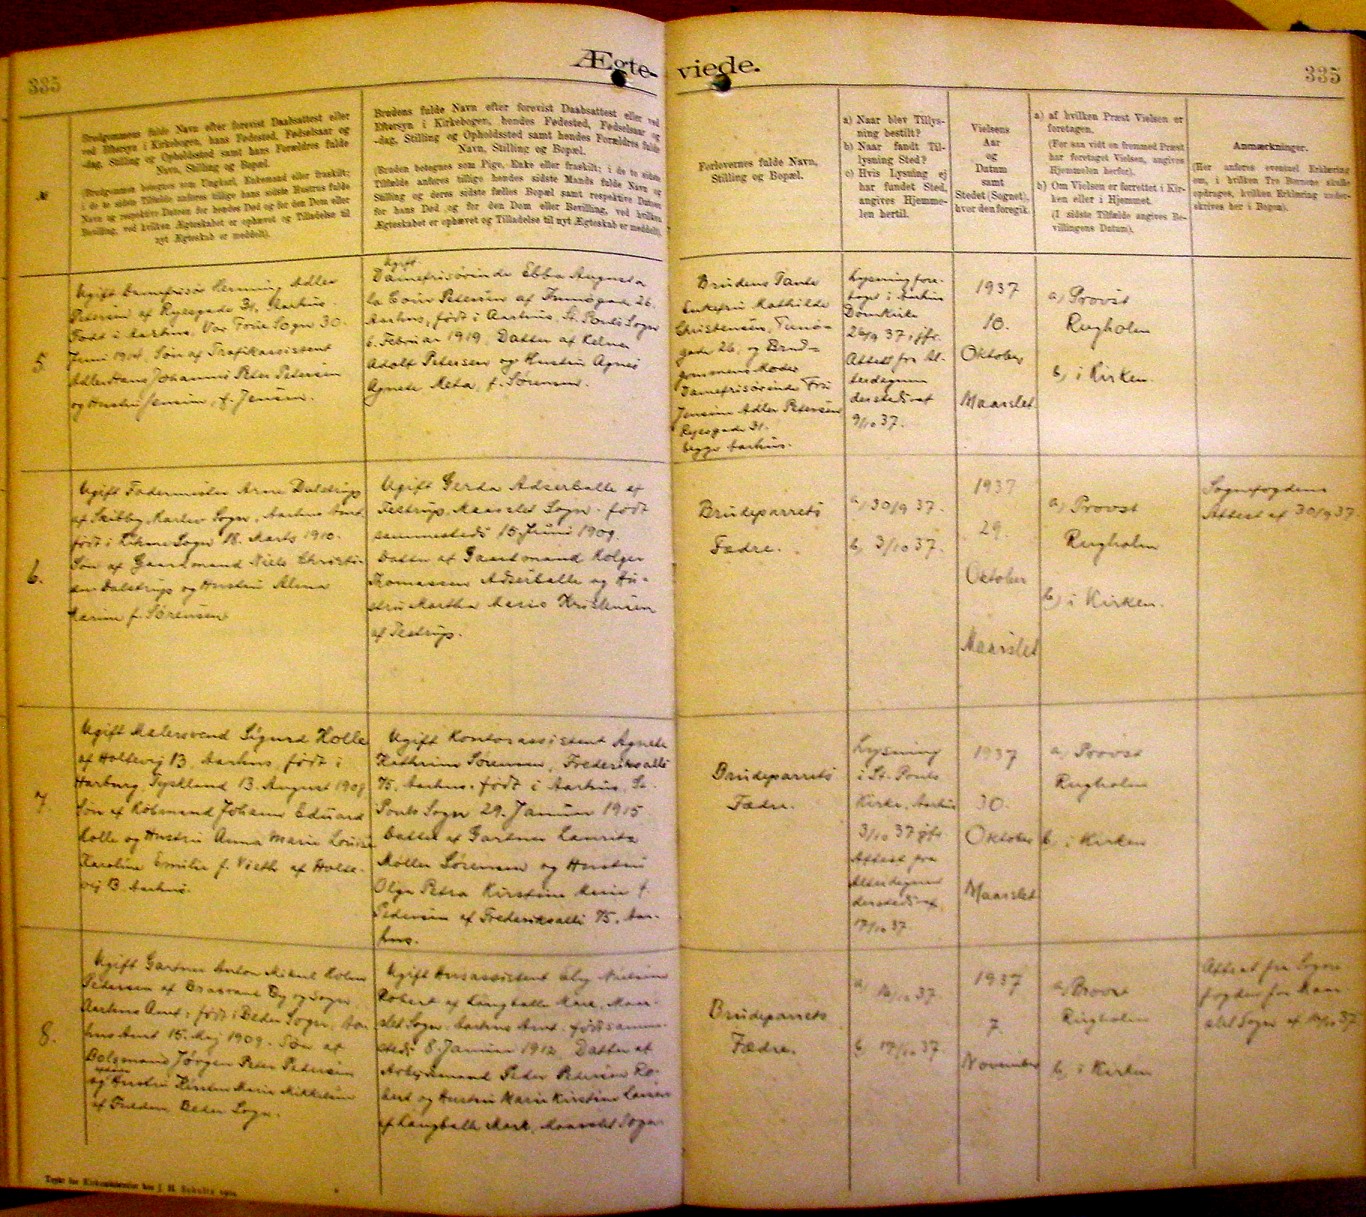 335
Ægte-
viede.
335
№
Brudgommens fulde Navn efter forevist Daabsattest eller
ved Eftersyn i Kirkebogen, hans Fødested, Fødselsaar og
-dag, Stilling og Opholdssted samt hans Forældres fulde
Navn, Stilling og Bopæl.
(Brudgommen betegnes som Ungkarl, Enkemand eller fraskilt;
i de to sidste Tilfælde anføres tillige hans sidste Hustrus fulde
Navn og respektive Datoen for hendes Død og for den Dom eller
Bevilling, ved hvilken Ægteskabet er ophævet og Tilladelse til
nyt Ægteskab er meddelt).
Brudens fulde Navn efter forevist Daabsattest eller ved
Eftersyn i Kirkebogen, hendes Fødested, Fødselsaar og
-dag, Stilling og Opholdssted samt hendes Forældres fulde
Navn, Stilling og Bopæl.
(Bruden betegnes som Pige, Enke eller fraskilt; i de to sidste
Tilfælde anføres tillige hendes sidste Mands fulde Navn og
Stilling og deres sidste fælles Bopæl samt respektive Datoen
for hans Død og for den Dom eller Bevilling, ved hvilken
Ægteskabet er ophævet og Tilladelse til nyt Ægteskab er meddelt).
Forlovernes fulde Navn,
Stilling og Bopæl.
a) Naar blev Tillys-
ning bestilt?
b) Naar fandt Til-
lysning Sted?
c) Hvis Lysning ej
har fundet Sted,
angives Hjemme-
len hertil.
Vielsens
Aar
og
Datum
samt
Stedet (Sognet),
hvor den foregik.
a) af hvilken Præst Vielsen er
foretagen.
(For saa vidt en fremmed Præst
har foretaget Vielsen, angives
Hjemmelen herfor).
b) Om Vielsen er forrettet i Kir-
ken eller i Hjemmet.
(I sidste Tilfælde angives Be-
villingens Datum).
Anmærkninger.
(Her anføres eventuel Erklæring
om, i hvilken Tro Børnene skulle
opdrages, hvilken Erklæring under-
skrives her i Bogen).
5.
Ugift Damefrisør Henning Adler
Petersen af Ryesgade 31, Aarhus.
Født i Aarhus, Vor Frue Sogn 30.
Juni 1914. Søn af Trafikassistent
Adler Hans Johannes Peter Petersen
og Hustru Jensine, f. Jensen.
Ugift
Damefrisørinde Ebba Augusta
la Cour Petersen af Tunøgade 26,
Aarhus, født i Aarhus, St. Pouls Sogn
6. Februar 1919. Datter af Kelner
Adolf Petersen og Hustru Agnes
Agnete Meta, f. Sørensen.
Brudens Tante
Enkefru Mathilde
Christensen, Tunø-
gade 26, og Brud-
gommens Moder
Damefrisørinde Fru
Jensine Adler Petersen
Ryesgade 31.
begge Aarhus.
Lysning fore-
taget i Aarhus
Domkirke
26/9 37, jfr.
Attest fra Al-
terdegnen
dersteds af
9/10 37.
1937
10.
Oktober
Maarslet
a) Provst
Rugholm
b) i Kirken.
6.
Ugift Fodermester Arne Dalstrup
af Skibby, Harlev Sogn, Aarhus Amt,
født i Sogn 18. Marts 1910.
Søn af Gaardmand Niels Christi-
an Dalstrup og Hustru Alma
Karine f. Sørensen
Ugift Gerda Adserballe af
Testrup, Maarslet Sogn. født
sammesteds 15. Juni 1909.
Datter af Gaardmand Holger
Thomassen Adserballe og Hu-
stru Martha Marie Kristensen
af Testrup.
Brudeparrets
Fædre.
a) 30/9 37.
b) 3/10 37.
1937
29.
Oktober
Maarslet
a) Provst
Rugholm
b) i Kirken.
Sognefogdens
Attest af 30/9 37.
7.
Ugift Malersvend Sigurd Holle
af Holtevej 13, Aarhus, født i
Harburg, Tyskland 13. August 1908
Søn af Købmand Johann Eduard
Holle og Hustru Anna Marie Louise
Karoline Emilie f. Vieth af Holte-
vej 13, Aarhus.
Ugift Kontorassistent Agnete
Kathrine Sørensen, Frederiksallé
75, Aarhus. født i Aarhus, St.
Pouls Sogn 29. Januar 1915
Datter af Gartner Laurits
Møller Sørensen og Hustru
Olga Petra Kirstine Marie f.
Pedersen af Frederiksallé 75, Aar-
hus.
Brudeparrets
Fædre.
Lysning
i St. Pouls
Kirke, Aarhus
3/10 37 jfr.
Attest fra
Alterdegnen
dersteds af
17/10 37.
1937
30.
Oktober
Maarslet
a) Provst
Rugholm
b) i Kirken
8.
Ugift Gartner Anton Mikael Holm
Petersen af Brabrand By og Sogn,
Aarhus Amt, født i Beder Sogn, Aar-
hus Amt 15. Maj 1909. Søn af
Bolsmand Jørgen Peter Petersen
og Hustru Kirsten Marie Mikkelsen
af Fulden, Beder Sogn.
Ugift Husassistent Elly Nielsine
Robert af Langballe Mark, Maar-
slet Sogn, Aarhus Amt, født samme-
steds 8. Januar 1912. Datter af
Arbejdsmand Peter Petersen Ro-
bert og Hustru Marie Kirstine Larsen
af Langballe Mark, Maarslet Sogn.
Brudeparrets
Fædre.
a) 14/10 37.
b) 17/10 37.
1937
7.
November
a) Provst
Rugholm
b) i Kirken
Attest fra Sogne-
fogden for Maar-
slet Sogn af 14/10 37.